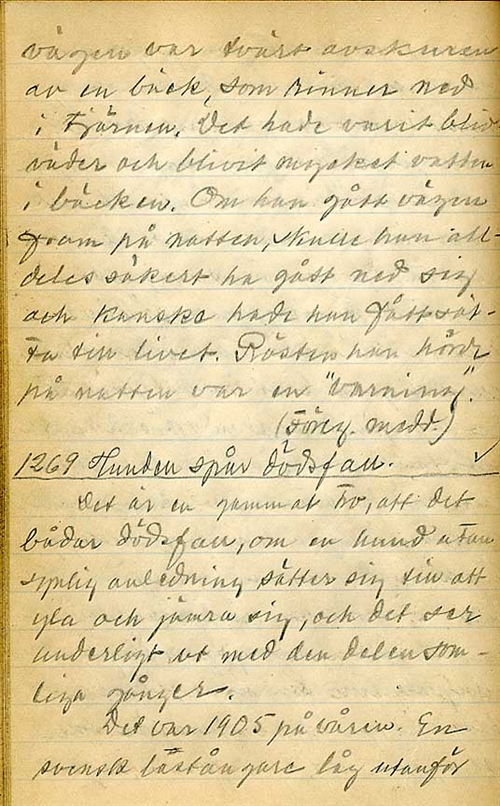 vägen var tvärt avskuren
av en bäck, som rinner ned
i tjärnen. Det hade varit blid
väder och blivit mycket vatten
i bäcken. Om han gått vägen
fram på natten, skulle han all-
deles säkert ha gått ned sig
och kanske hade han fått sät-
ta till livet. Rösten han hörde
på natten var en "varning".
(Föreg. medd.)
1269 Hunden spår dödsfall. ✓
Det är en gammal tro, att det
bådar dödsfall, om en hund utan
synlig anledning sätter sig till att
yla och jämra sig, och det ser
underligt ut med den delen som-
liga gånger.
Det var 1905 på våren. En
svensk låg utanför